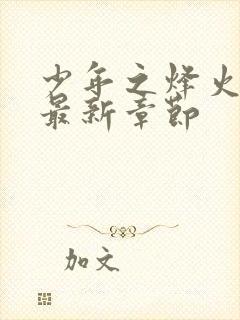 少年之烽火
最新章節
加文